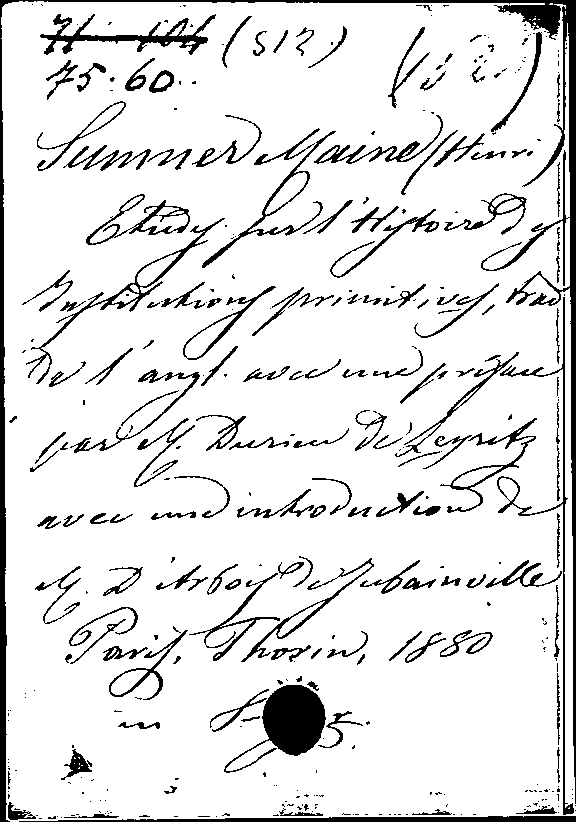 71-104 (S12)
75.60.
Sumner Maine (Henri)
Etudes sur l'Histoire des
Institutions primitives, trad
de l'angl. avec une préface
par M. Durieu de Leyritz
avec une introduction de
M. D'Arbois de Jubainville
Paris, Thorin, 1880
in 8°